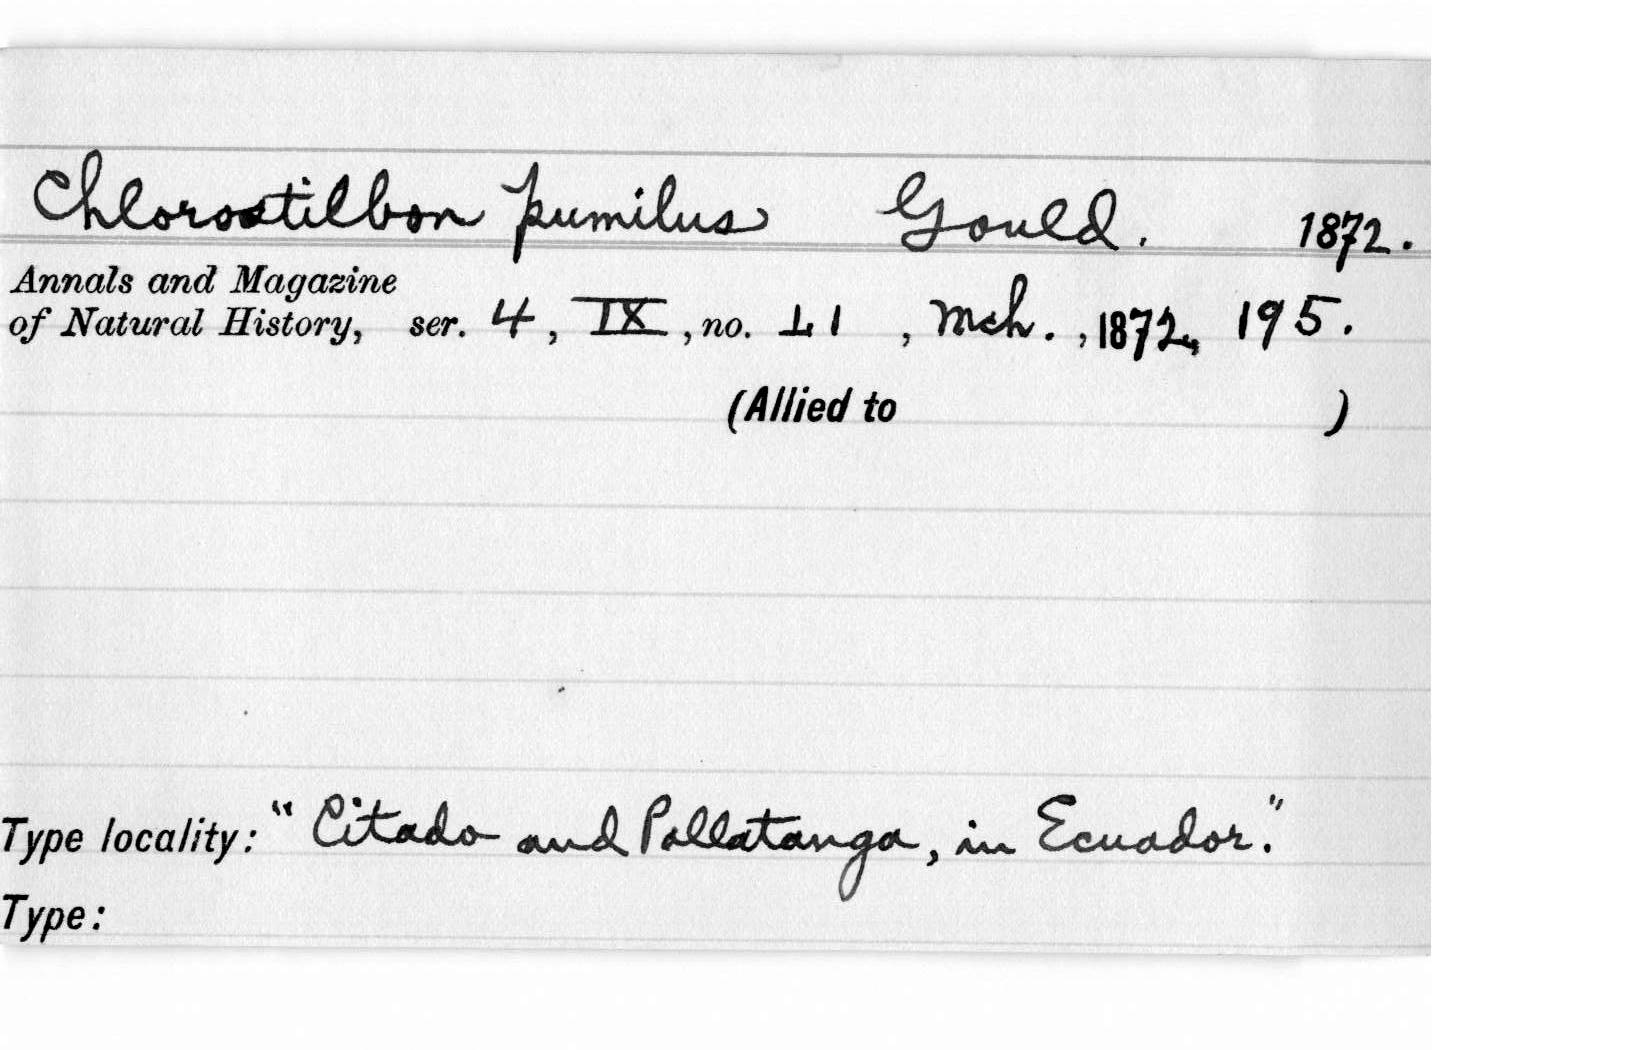 Chlorostilbon pumilus Gould. 1872.
Annals and Magazine
of Natural History, ser. 4, IX, no. 51, Mch., 1872, 195.
(Allied to )
Type locality: "Citado and Pallatanga, in Ecuador."
Type: